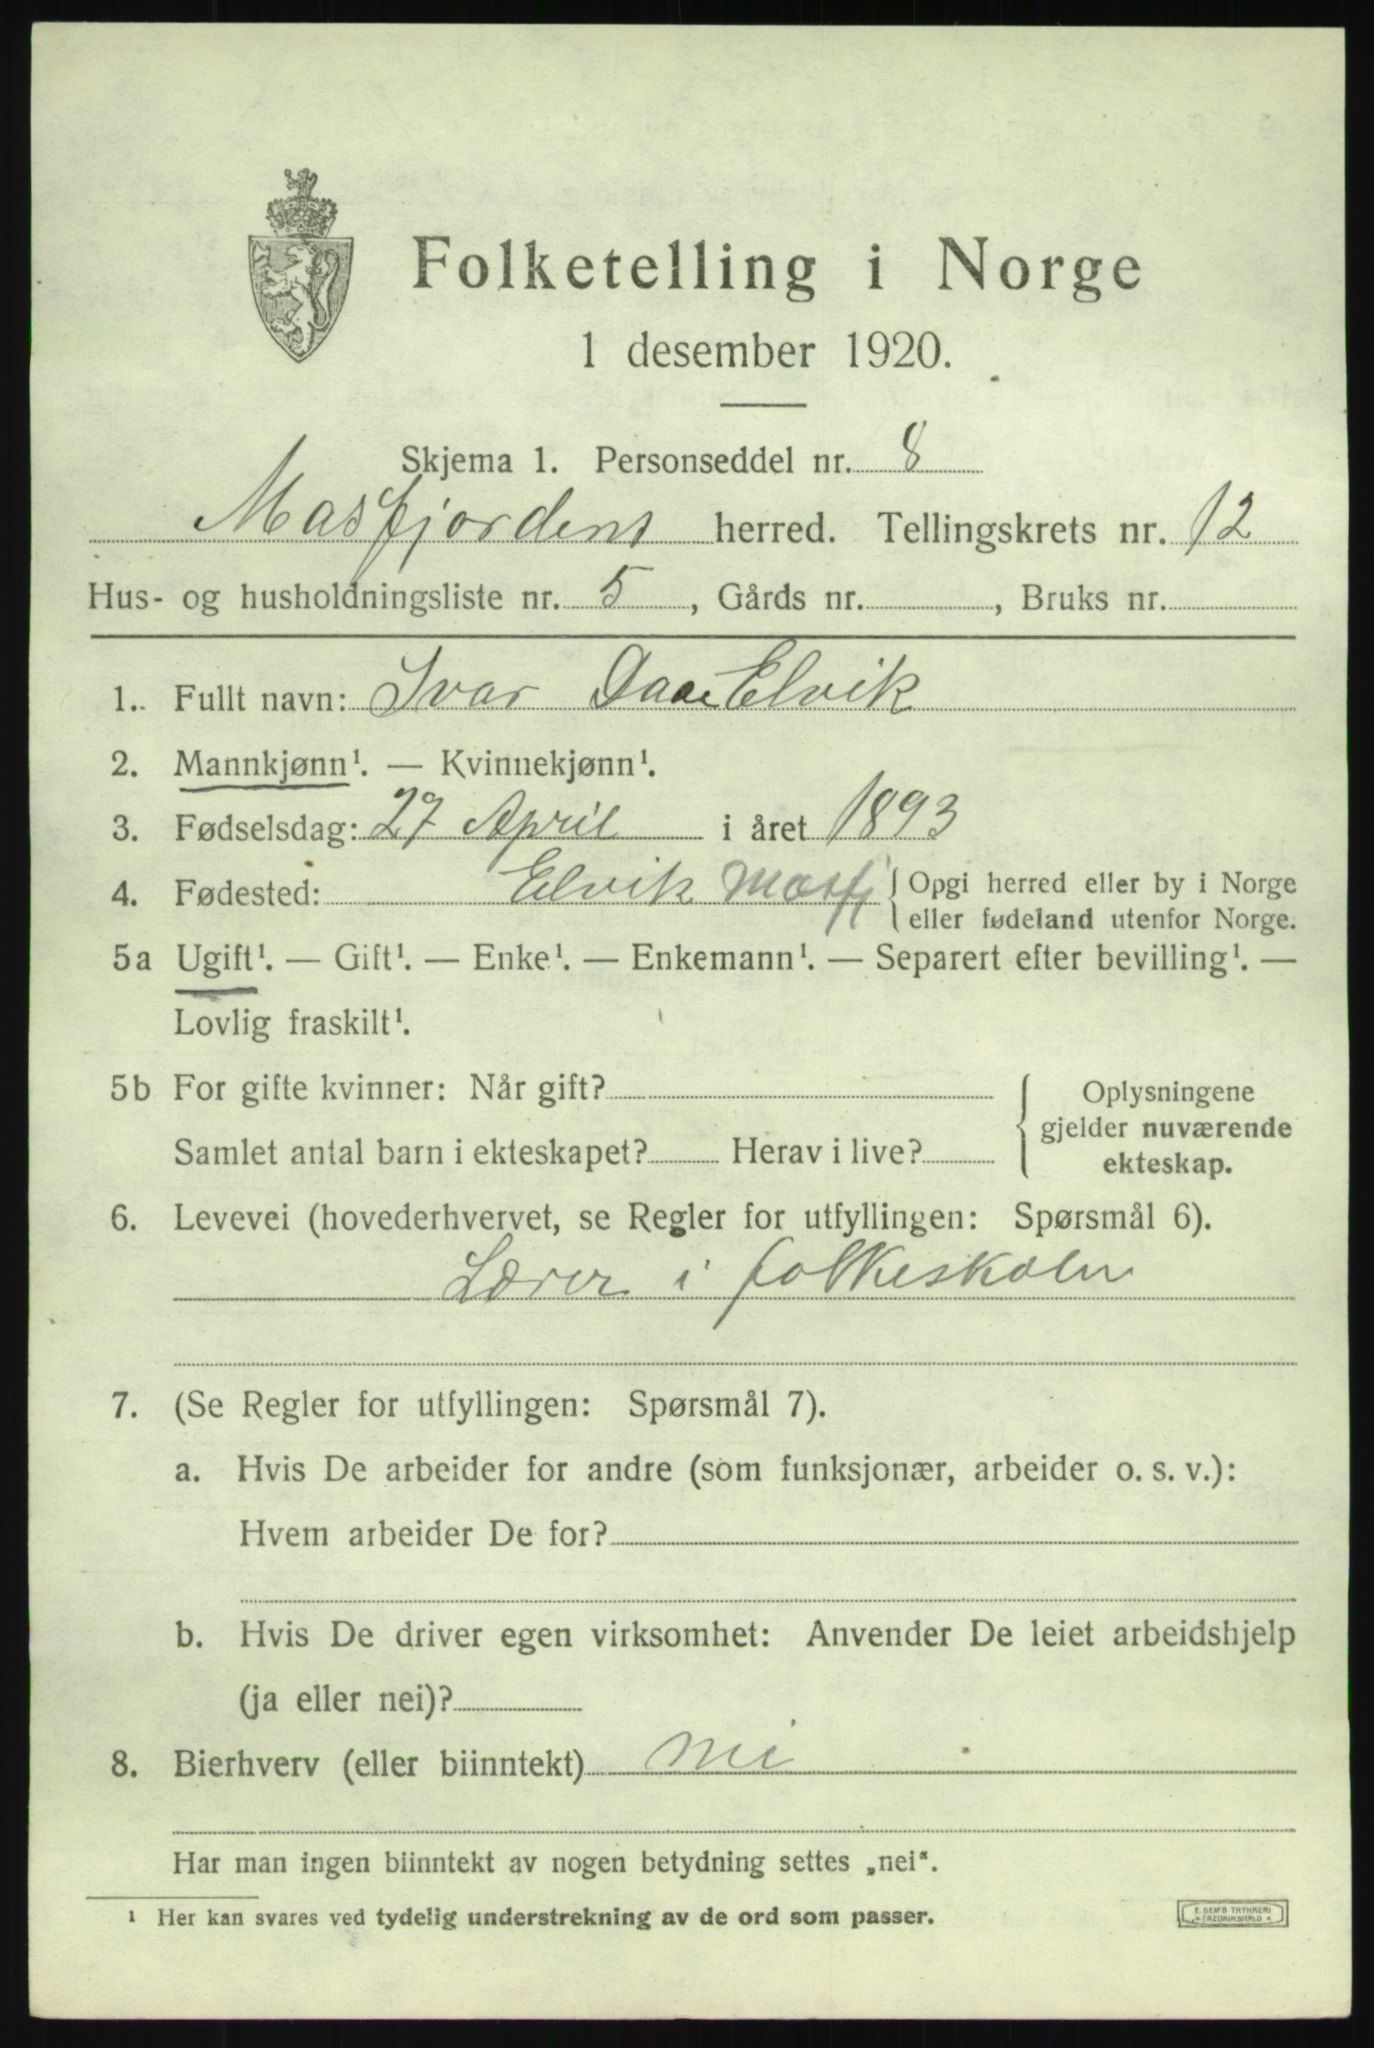 Folketelling i Norge
1 desember 1920.
Skjema 1. Personseddel nr. 8
Masfjordens herred. Tellingskrets nr. 12
Hus- og husholdningsliste nr. 5, Gårds nr. , Bruks nr.
1. Fullt navn: Ivar Daae Elvik
2. Mannkjønn¹. — Kvinnekjønn¹.
3. Fødselsdag: 27 April i året 1893
4. Fødested: Elvik Masfj { Opgi herred eller by i Norge
eller fødeland utenfor Norge.
5a Ugift¹. — Gift¹. — Enke¹. — Enkemann¹. — Separert efter bevilling¹. —
Lovlig fraskilt¹.
5b For gifte kvinner: Når gift?
Samlet antal barn i ekteskapet? Herav i live?
Oplysningene
gjelder nuværende
ekteskap.
6. Levevei (hovederhvervet, se Regler for utfyllingen: Spørsmål 6).
Lærer i folkeskolen
7. (Se Regler for utfyllingen: Spørsmål 7).
a. Hvis De arbeider for andre (som funksjonær, arbeider o. s. v.):
Hvem arbeider De for?
b. Hvis De driver egen virksomhet: Anvender De leiet arbeidshjelp
(ja eller nei)?
8. Bierhverv (eller biinntekt) nei
Har man ingen biinntekt av nogen betydning settes „nei“.
¹ Her kan svares ved tydelig understrekning av de ord som passer.
E. SEM'S TRYKKERI
FREDRIKSHALD